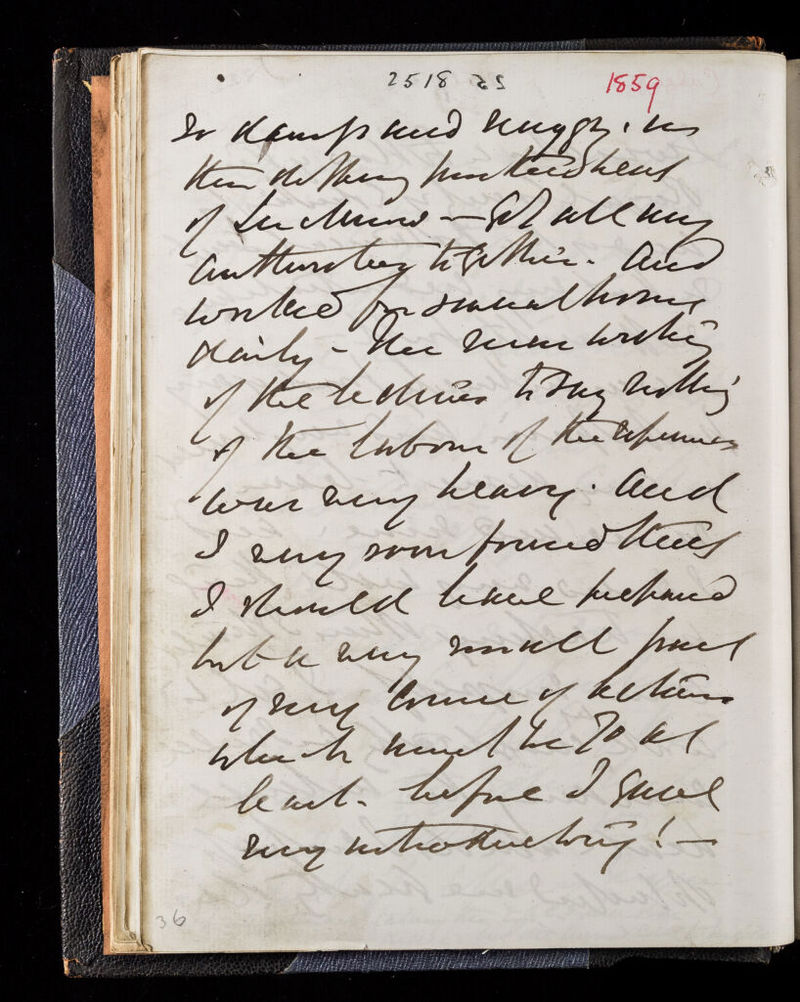 2518 25 1859
So damp and muggy. in
then nothing
of Lectures — Got all my
authorities together. And
worked for several hours
daily - The mere writing
of the lectures to say nothing
of the labour of the
was very heavy. And
I very soon found that
I should have prepared
but a very small part
of my Course of lectures
which must be 70 at
least - before I gave
my introductory! —
36